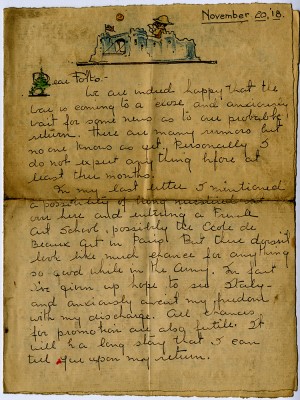 November 20, '18.
Dear Folks:-
We are indeed happy that the
war is coming to a close and anxiously
wait for some news as to our probable
return. There are many rumors but
no one knows as yet. Personally I
do not expect any thing before at
least three months.
In my last letter I mentioned
a possibility of being mustered out
over here and entering a French
Art School, possibly the Ecole de
Beaux Art in Paris. But there doesn't
look like much chance for anything
so good while in the Army. In fact
I've given up hope to see Italy-
and anxiously await my freedom
with my discharge. All chances
for promotion are also futile. It
will be a long story that I can
tell you upon my return.